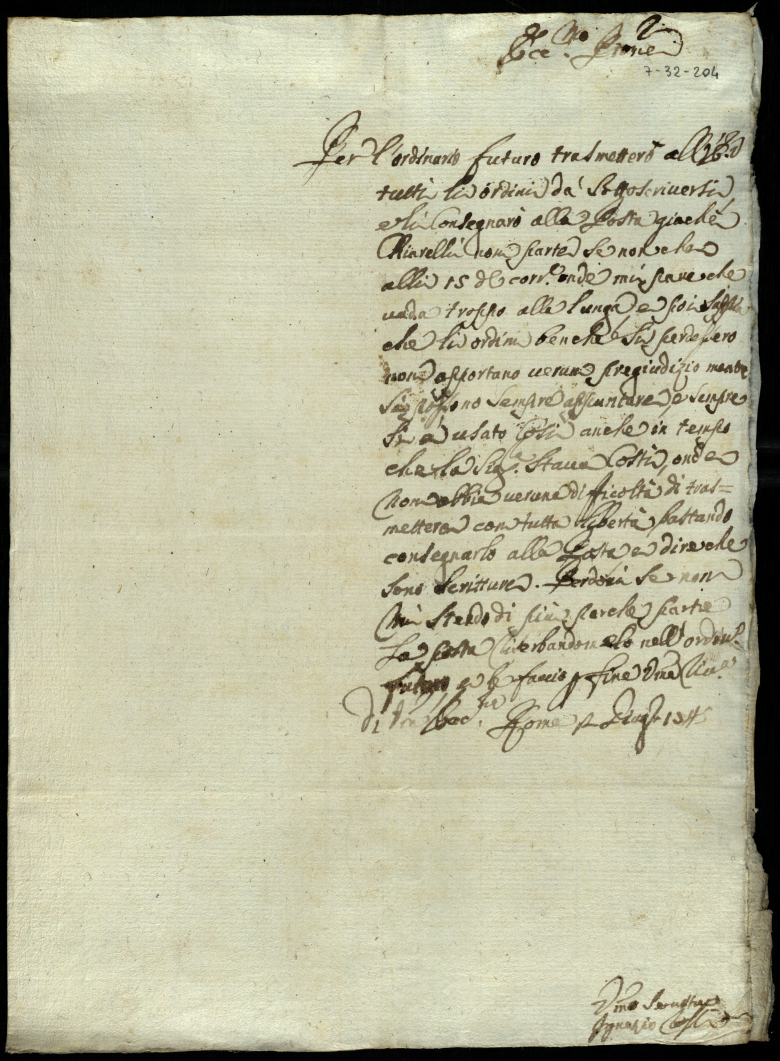 Ecc.mo Prone
7-32-204
Per l'ordinario futuro trasmetterò all'
tutti li ordini da sottoscriversi
e li consegnarò alla Posta giachè
Chiarelli non parte se non che
alli 15 del corr.e onde mi pare che
vada troppo alla lunga e poi sappia
che li ordini benche si perdessero
non apportano verun pregiudizio mentre
si possono sempre appuntare, e sempre
si è usato così anche in tempo
che la Sig.a stava costì, onde
non abbia veruna dificoltà di tras=
mettere con tutta libertà bastando
consegnarlo alla Posta e dire che
sono scritture. Perdoni se non
mi stendo di più perche parte
la posta riserbandomelo nell'ordin.o
futuro e le faccio p fine
Di Roma
Ignazio